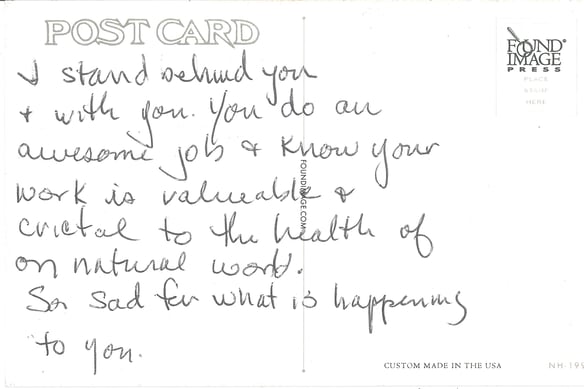 POST CARD
FOUND IMAGE PRESS
PLACE
STAMP
HERE
I stand behind you
+ with you. You do an
awesome job & know your
work is valueable &
crictal to the health of
on natural world.
So sad for what is happening
to you.
FOUNDIMAGE.COM
CUSTOM MADE IN THE USA
NH-195